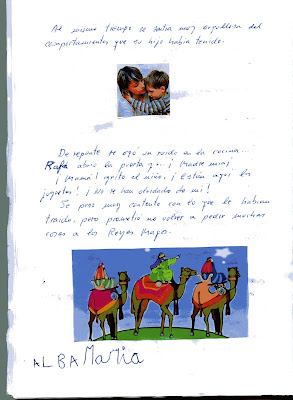 Al mismo tiempo se sentía muy orgullosa del
comportamiento que su hijo había tenido.
De repente se oyó un ruido en la cocina...
Rafa abrió la puerta y... ¡Madre mía!
¡Mamá! gritó el niño, ¡Están aquí los
juguetes! ¡No se han olvidado de mí!
Se puso muy contento con lo que le habían
traído, pero prometió no volver a pedir muchas
cosas a los Reyes Magos.
ALBA María